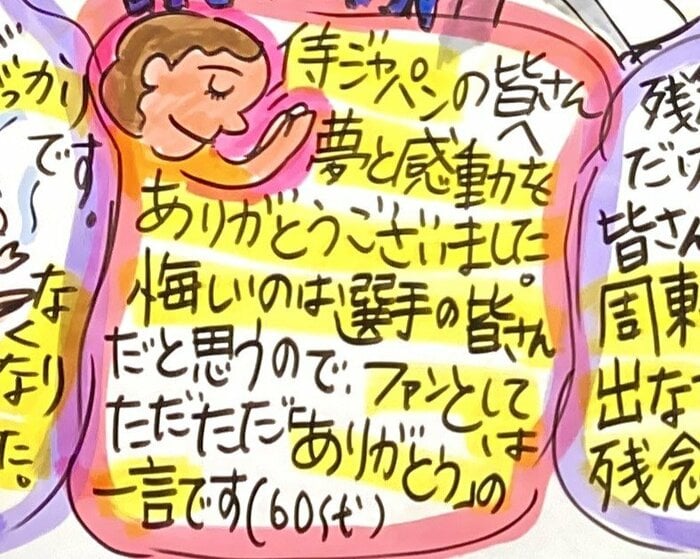 侍ジャパンの皆さんへ
夢と感動を
ありがとうございました。
悔しいのは選手の皆さん
だと思うので、ファンとしては
ただただ「ありがとう」の
一言です(60代)
っかり
です。
なくなり
た。
残
だけ
皆さん
周東
出な
残念